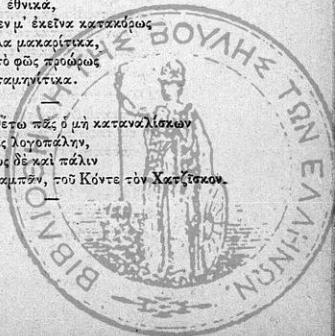 ἐθνικά,
εν μ' ἐκεῖνα κατακόρως
λα μακαρίτικα,
τὸ φῶς προώρως
ταμηνίτικα.
θέτω πᾶς ὁ μὴ καταναλίσκων
ς λογοπάλην,
ως δὲ καὶ πάλιν
αμπᾶν, τοῦ Κόντε τὸν Χατζίσκον.
ΒΙΒΛΙΟΘΗΚΗ ΤΗΣ ΒΟΥΛΗΣ ΤΩΝ ΕΛΛΗΝΩΝ